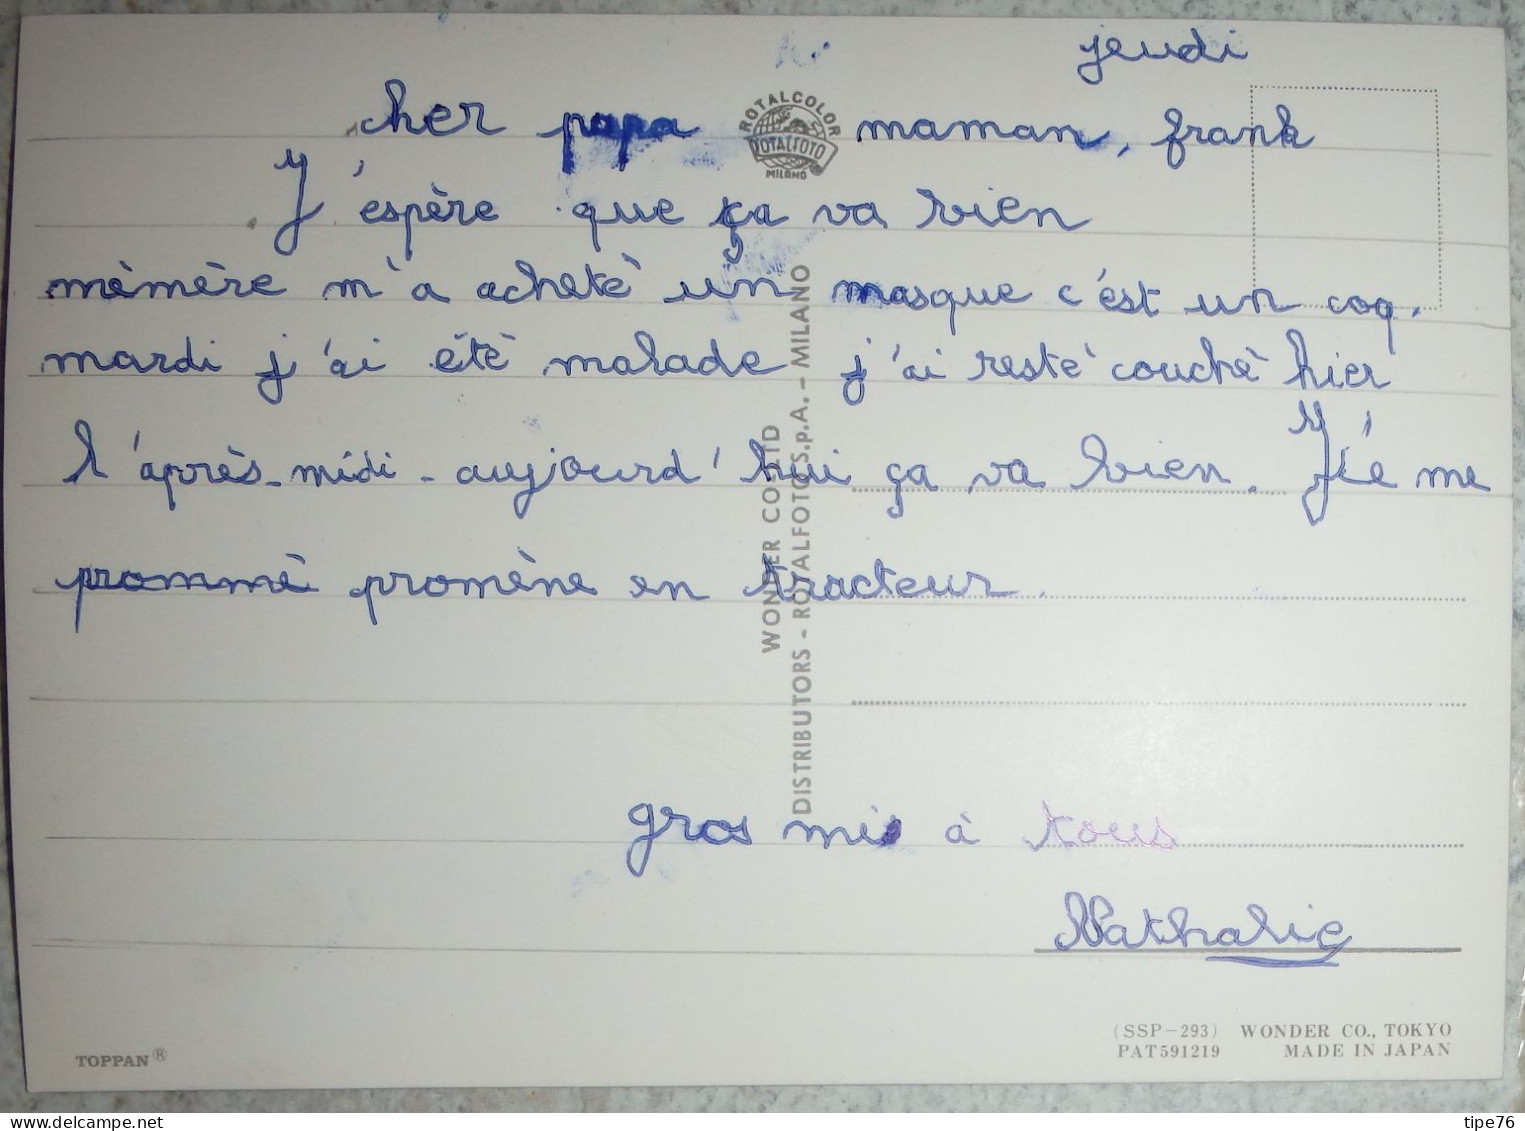 jeudi
cher papa maman, frank
J'espère que ça va bien
mèmère m'a achetè un masque c'est un coq.
mardi j'ai étè malade j'ai resté couchè hier
l'après-midi - aujourd'hui ça va bien. J'é me
prommè promène en tracteur.
gros mis à tous
Nathalie
ROTALCOLOR
ROTALFOTO
MILANO
WONDER CO. LTD
DISTRIBUTORS - ROTALFOTO S.p.A. - MILANO
TOPPAN®
(SSP-293) WONDER CO., TOKYO
PAT591219 MADE IN JAPAN
tipe76